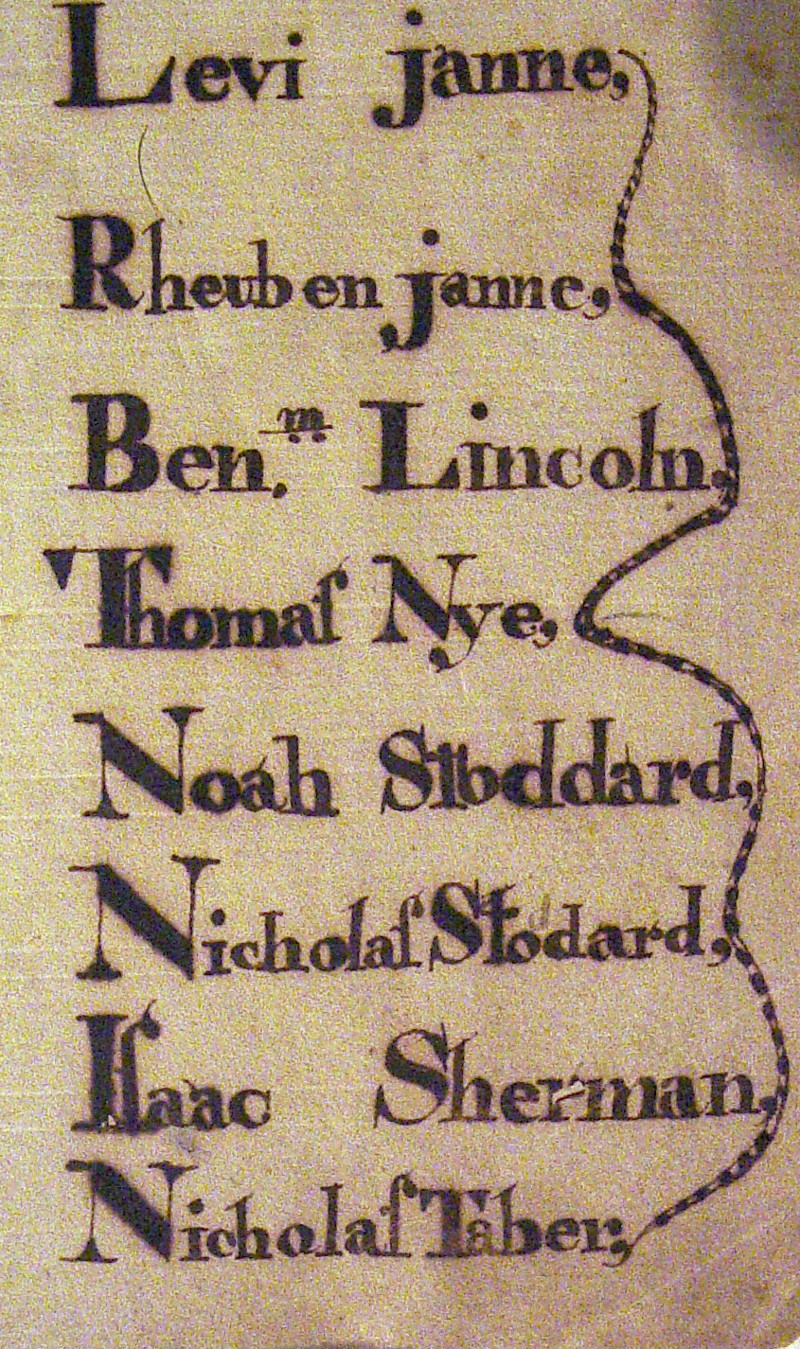 Levi janne,
Rheuben janne,
Ben.m Lincoln,
Thomaſ Nye,
Noah Stoddard,
Nicholaſ Stodard,
Iſaac Sherman,
Nicholaſ Taber,